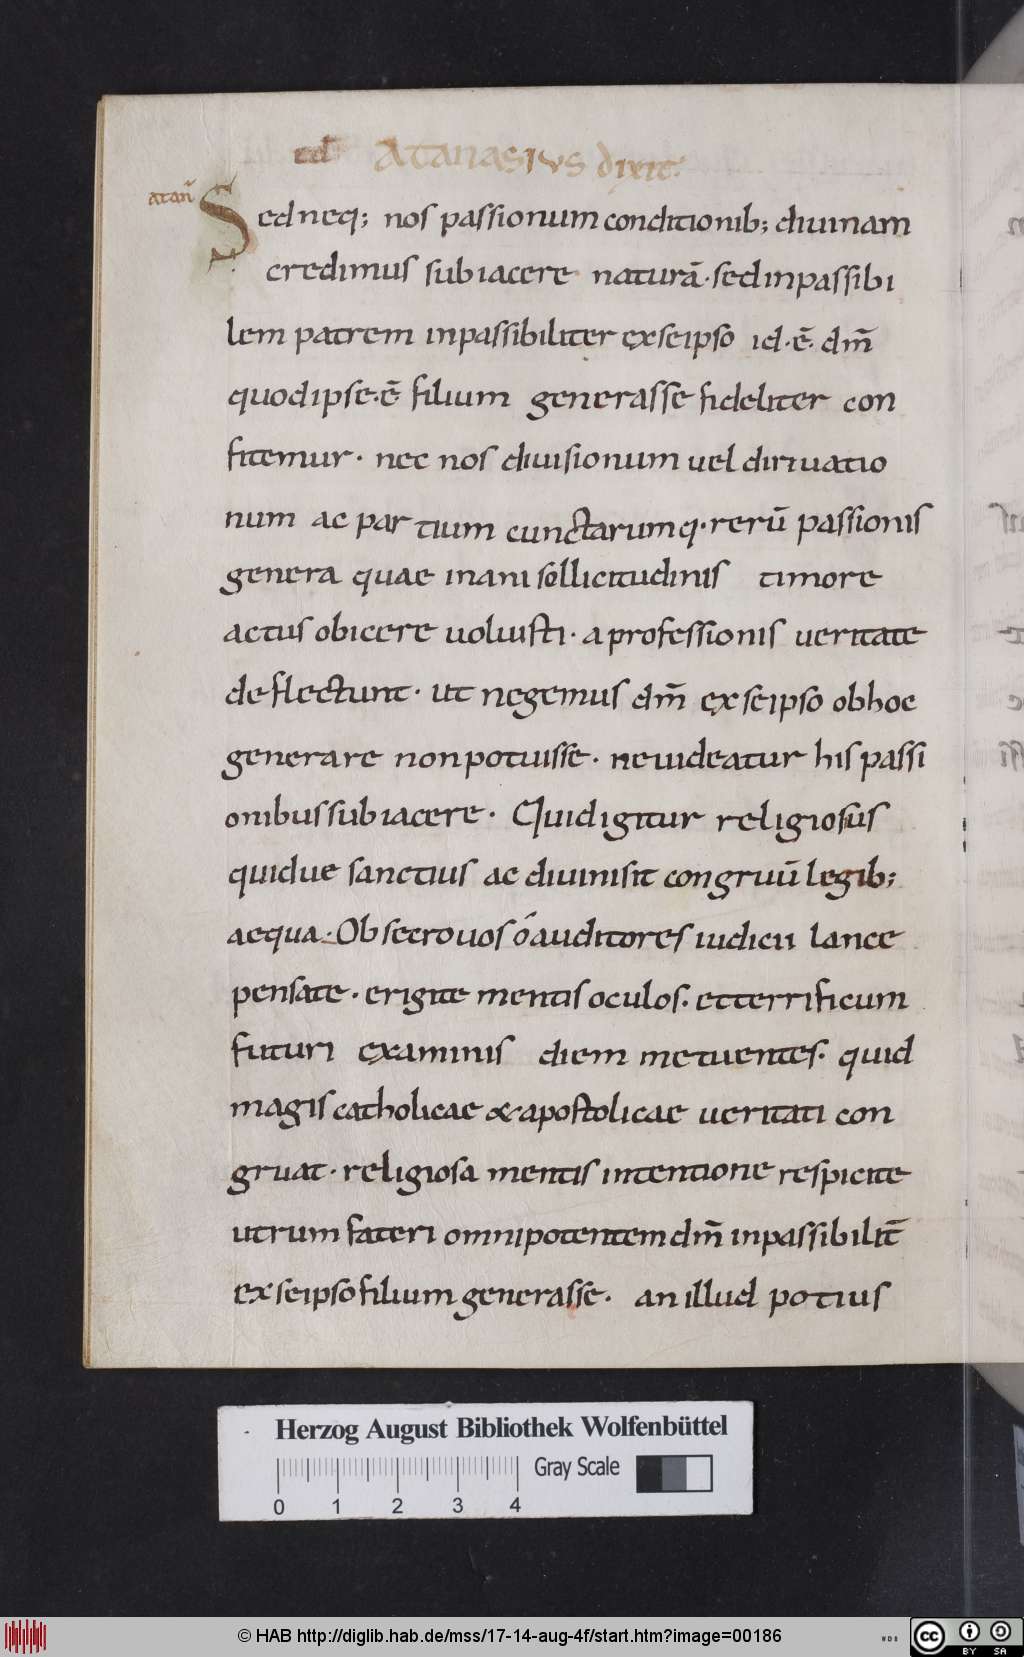 Atanasius dixit.
atan̄
Sed neq; nos passionum conditionib; diuinam
credimus subiacere naturā. sed inpassibi
lem patrem inpassibiliter ex seipso id. ē. dm̄
quod ipse. ē filium generasse fideliter con
fitemur. nec nos diuisionum uel diriuatio
num ac partium cunctarumq. rerū passionis
genera quae inani sollicitudinis timore
actus obicere uoluisti. a professionis ueritate
deflectunt. ut negemus dm̄ ex seipso ob hoc
generare non potuisse. ne uideatur his passi
onibus subiacere. Quid igitur religiosus
quidue sanctius ac diuinis it congruū legib;
aequa. Obsecro uos ó auditores iudicii lance
pensate. erigite mentis oculos. et terrificum
futuri examinis diem metuentes. quid
magis catholicae & apostolicae ueritati con
gruat. religiosa mentis intentione respicite
utrum fateri omnipotentem dm̄ inpassibilit̄
ex seipso filium generasse. an illud potius
Herzog August Bibliothek Wolfenbüttel
Gray Scale
0 1 2 3 4
© HAB http://diglib.hab.de/mss/17-14-aug-4f/start.htm?image=00186
WDB
cc BY SA